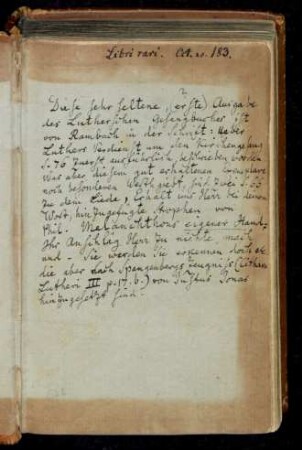 Libri rari. Oct. no. 183.
Diese sehr seltene (erste) Ausgabe
des Lutherschen Gesangbuches ist
von Rambach in der Schrift: Ueber
Luthers Verdienst um den Kirchengesang
S. 76 zuerst ausführlich beschrieben worden
Was aber diesem gut erhaltenen Exemplare
noch besonderen Werth giebt, sind zwei S. 
zu dem Liede, Erhalt uns Herr bei deinem
Wort, hinzugefügte Strophen von
Phil. Melanchthons eigener Hand.
Ihr Anschlag Herr zu nichte mach
und - Sie werden Sie erkennen doch etc.
die aber nach Spangenbergs Zeugniss (Cithara
Lutheri III p. 17. b.) von Justus Jonas
hinzugesetzt sind.